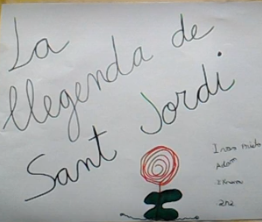 La
llegenda de
Sant Jordi